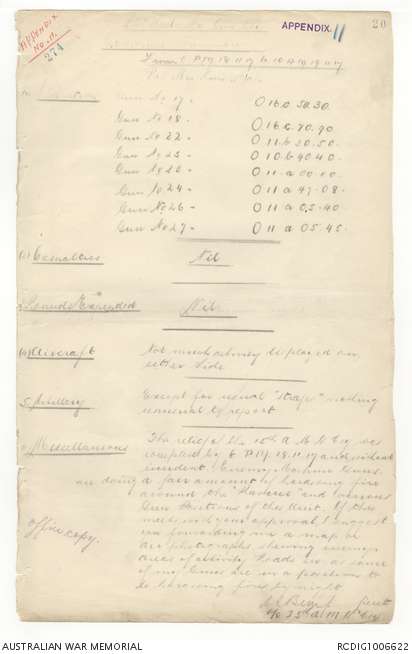 Appendix
No. 11.
274
APPENDIX. 11
20
From 6 PM 18.11.17 to 10 AM 19.11.17
Gun No 17 - O 16.a 50.30
Gun No 18 - O 16.c.70.90
Gun No 22 - O 11.b 50.50
Gun No 23 - O 10.b 40.40
O 11.a 00.00
Gun No 24 O 11 a 47-08.
Gun No 26 - O 11 a 05.40
Gun No 27 - O 11 a 05.45
Casualties Nil
Rounds Expended Nil
Aircraft Not much activity displayed on
either side
5 Artillery Except for usual "strafe" nothing
unusual to report
Miscellaneous The relief of the A M G Coy was
completed by 6 PM 18.11.17 and without
incident. Enemy Machine Guns
are doing a fair amount of harassing fire
around the and various
Gun Positions of this Unit. If this
meets with your approval I suggest
you forwarding me a map or
air photographs shewing enemy
areas of activity Roads etc as some
of my Guns are in a position to
do harassing fire by night
Office copy.
Lieut
AUSTRALIAN WAR MEMORIAL
RCDIG1006622